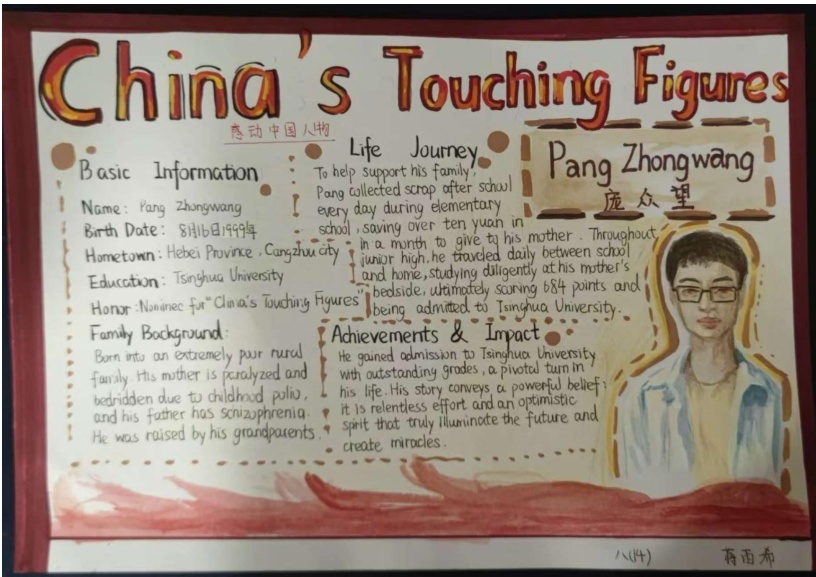 China's Touching Figures
感动中国人物
Basic Information
Name: Pang Zhongwang
Birth Date: 8月16日1999年
Hometown: Hebei Province, Cangzhou city
Education: Tsinghua University
Honor: Nominee for "China's Touching Figures"
Family Background:
Born into an extremely poor rural
family. His mother is paralyzed and
bedridden due to childhood polio,
and his father has schizophrenia.
He was raised by his grandparents.
Life Journey
To help support his family,
Pang collected scrap after school
every day during elementary
school, saving over ten yuan in
in a month to give to his mother. Throughout
junior high, he traveled daily between school
and home, studying diligently at his mother's
bedside, ultimately scoring 684 points and
being admitted to Tsinghua University.
Achievements & Impact
He gained admission to Tsinghua University
with outstanding grades, a pivotal turn in
his life. His story conveys a powerful belief:
it is relentless effort and an optimistic
spirit that truly illuminate the future and
create miracles.
Pang Zhongwang
庞众望
八(14)
蒋雨希